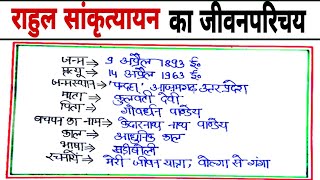 राहुल सांकृत्यायन का जीवनपरिचय
जन्म → 9 अप्रैल 1893 ई.
मृत्यु → 14 अप्रैल 1963 ई.
जन्मस्थान → 'पन्दहा', आजमगढ़ उत्तर प्रदेश
माता → कुलवती देवी
पिता → गोवर्धन पाण्डेय
बचपन का नाम → केदारनाथ पाण्डेय
काल → आधुनिक काल
भाषा → खड़ीबोली
रचनायें → मेरी जीवन यात्रा, वोल्गा से गंगा